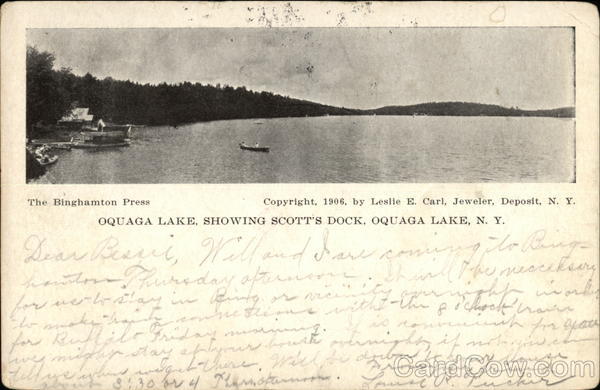 The Binghamton Press
Copyright, 1906, by Leslie E. Carl, Jeweler, Deposit, N. Y.
OQUAGA LAKE, SHOWING SCOTT'S DOCK, OQUAGA LAKE, N. Y.
Dear Bessie, Will and I are coming to Bing-
hamton Thursday afternoon. It will be neccessary
for us to stay in Bing. or vicinity over night in order
to make train connections with the 8 o'clock train
for Buffalo Friday morning. If is convenient for
we might stay at your house overnight if not you can
tell us when we get there. Will be down to your house
about 3:30 or 4 Thurs afternoon.
Louise
CardCow.com